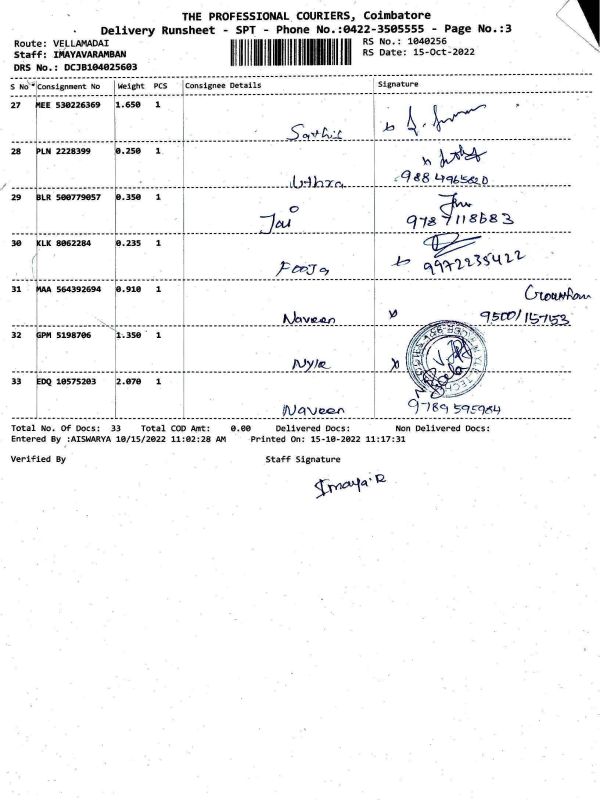 THE PROFESSIONAL COURIERS, Coimbatore
Delivery Runsheet - SPT - Phone No.:0422-3505555 - Page No.:3
Route: VELLAMADAI RS No.: 1040256
Staff: IMAYAVARAMBAN RS Date: 15-Oct-2022
DRS No.: DCJB104025603
S No Consignment No Weight PCS Consignee Details Signature
27 MEE 530226369 1.650 1
Sathis
28 PLN 2228399 0.250 1
Uthra 9884965820
29 BLR 500779057 0.350 1
Jai 9787118683
30 KLK 8062284 0.235 1
Pooja 9972235422
31 MAA 564392694 0.910 1
Gowtham
Naveen 9500115753
32 GPM 5198706 1.350 1
Nyle
33 EDQ 10575203 2.070 1
Naveen 9789595984
Total No. Of Docs: 33 Total COD Amt: 0.00 Delivered Docs: Non Delivered Docs:
Entered By :AISWARYA 10/15/2022 11:02:28 AM Printed On: 15-10-2022 11:17:31
Verified By Staff Signature
Imaya.R